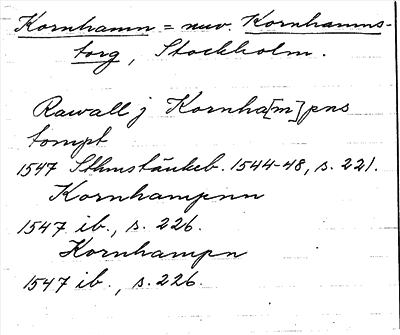 Kornhamn = nuv. Kornhamns-
torg, Stockholm.
Rawall j Kornha[m]pns
tompt
1547 Sthmstänkeb. 1544-48, s. 221.
Kornhampnn
1547 ib., s. 226.
Kornhampn
1547 ib., s. 226.